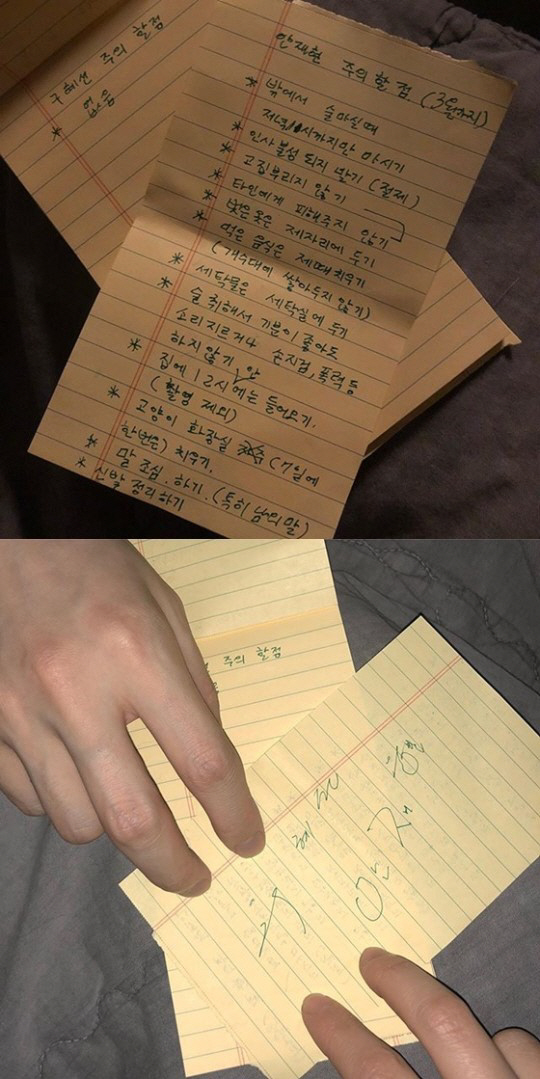 구혜선 주의 할 점
* 없음
안재현 주의 할 점. (3월까지)
* 밖에서 술마실때
저녁 시까지만 마시기
* 인사불성 되지 말기 (절제)
* 고집부리지 않기
* 타인에게 피해주지 않기
* 벗은 옷은 제자리에 두기
* 먹은 음식은 제때 치우기
(개수대에 쌓아두지 않기)
* 세탁물은 세탁실에 두기
* 술 취해서 기분이 좋아도
소리 지르거나 손지검, 폭력 등
하지 않기 안
* 집에 12시에는 들어오기.
(촬영 제외)
* 고양이 화장실 (7일에
한번은) 치우기.
* 말 조심. 하기. (특히 남의 말)
* 신발 정리하기
주의 할 점
구혜선
안재현